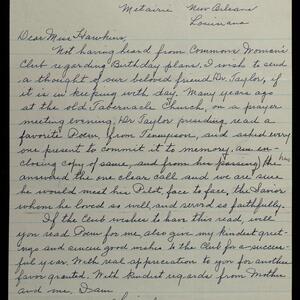 Metairie New Orleans
Louisiana
Dear Miss Hawkins,
Not having heard from Common Women's
Club regarding Birthday plans, I wish to send
a thought of our beloved friend Dr Taylor, if
it is in keeping with day. Many years ago
at the old Tabernacle Church, on a prayer
meeting evening, Dr Taylor presiding read a
favorite Poem from Tennyson, and asked every
one present to commit it to memory, am en-
closing copy of same, and from his passing he
answered the one clear call and we are sure
he would meet his Pilot, face to face, the Savior
whom he loved so well, and served so faithfully.
If the Club wishes to have this read, will
you read Poem for me, also give my kindest greet-
ings and sincere good wishes to the Club for a success-
ful year. With real appreciation to you for another
favor granted. With kindest regards from Mother
and me, I am